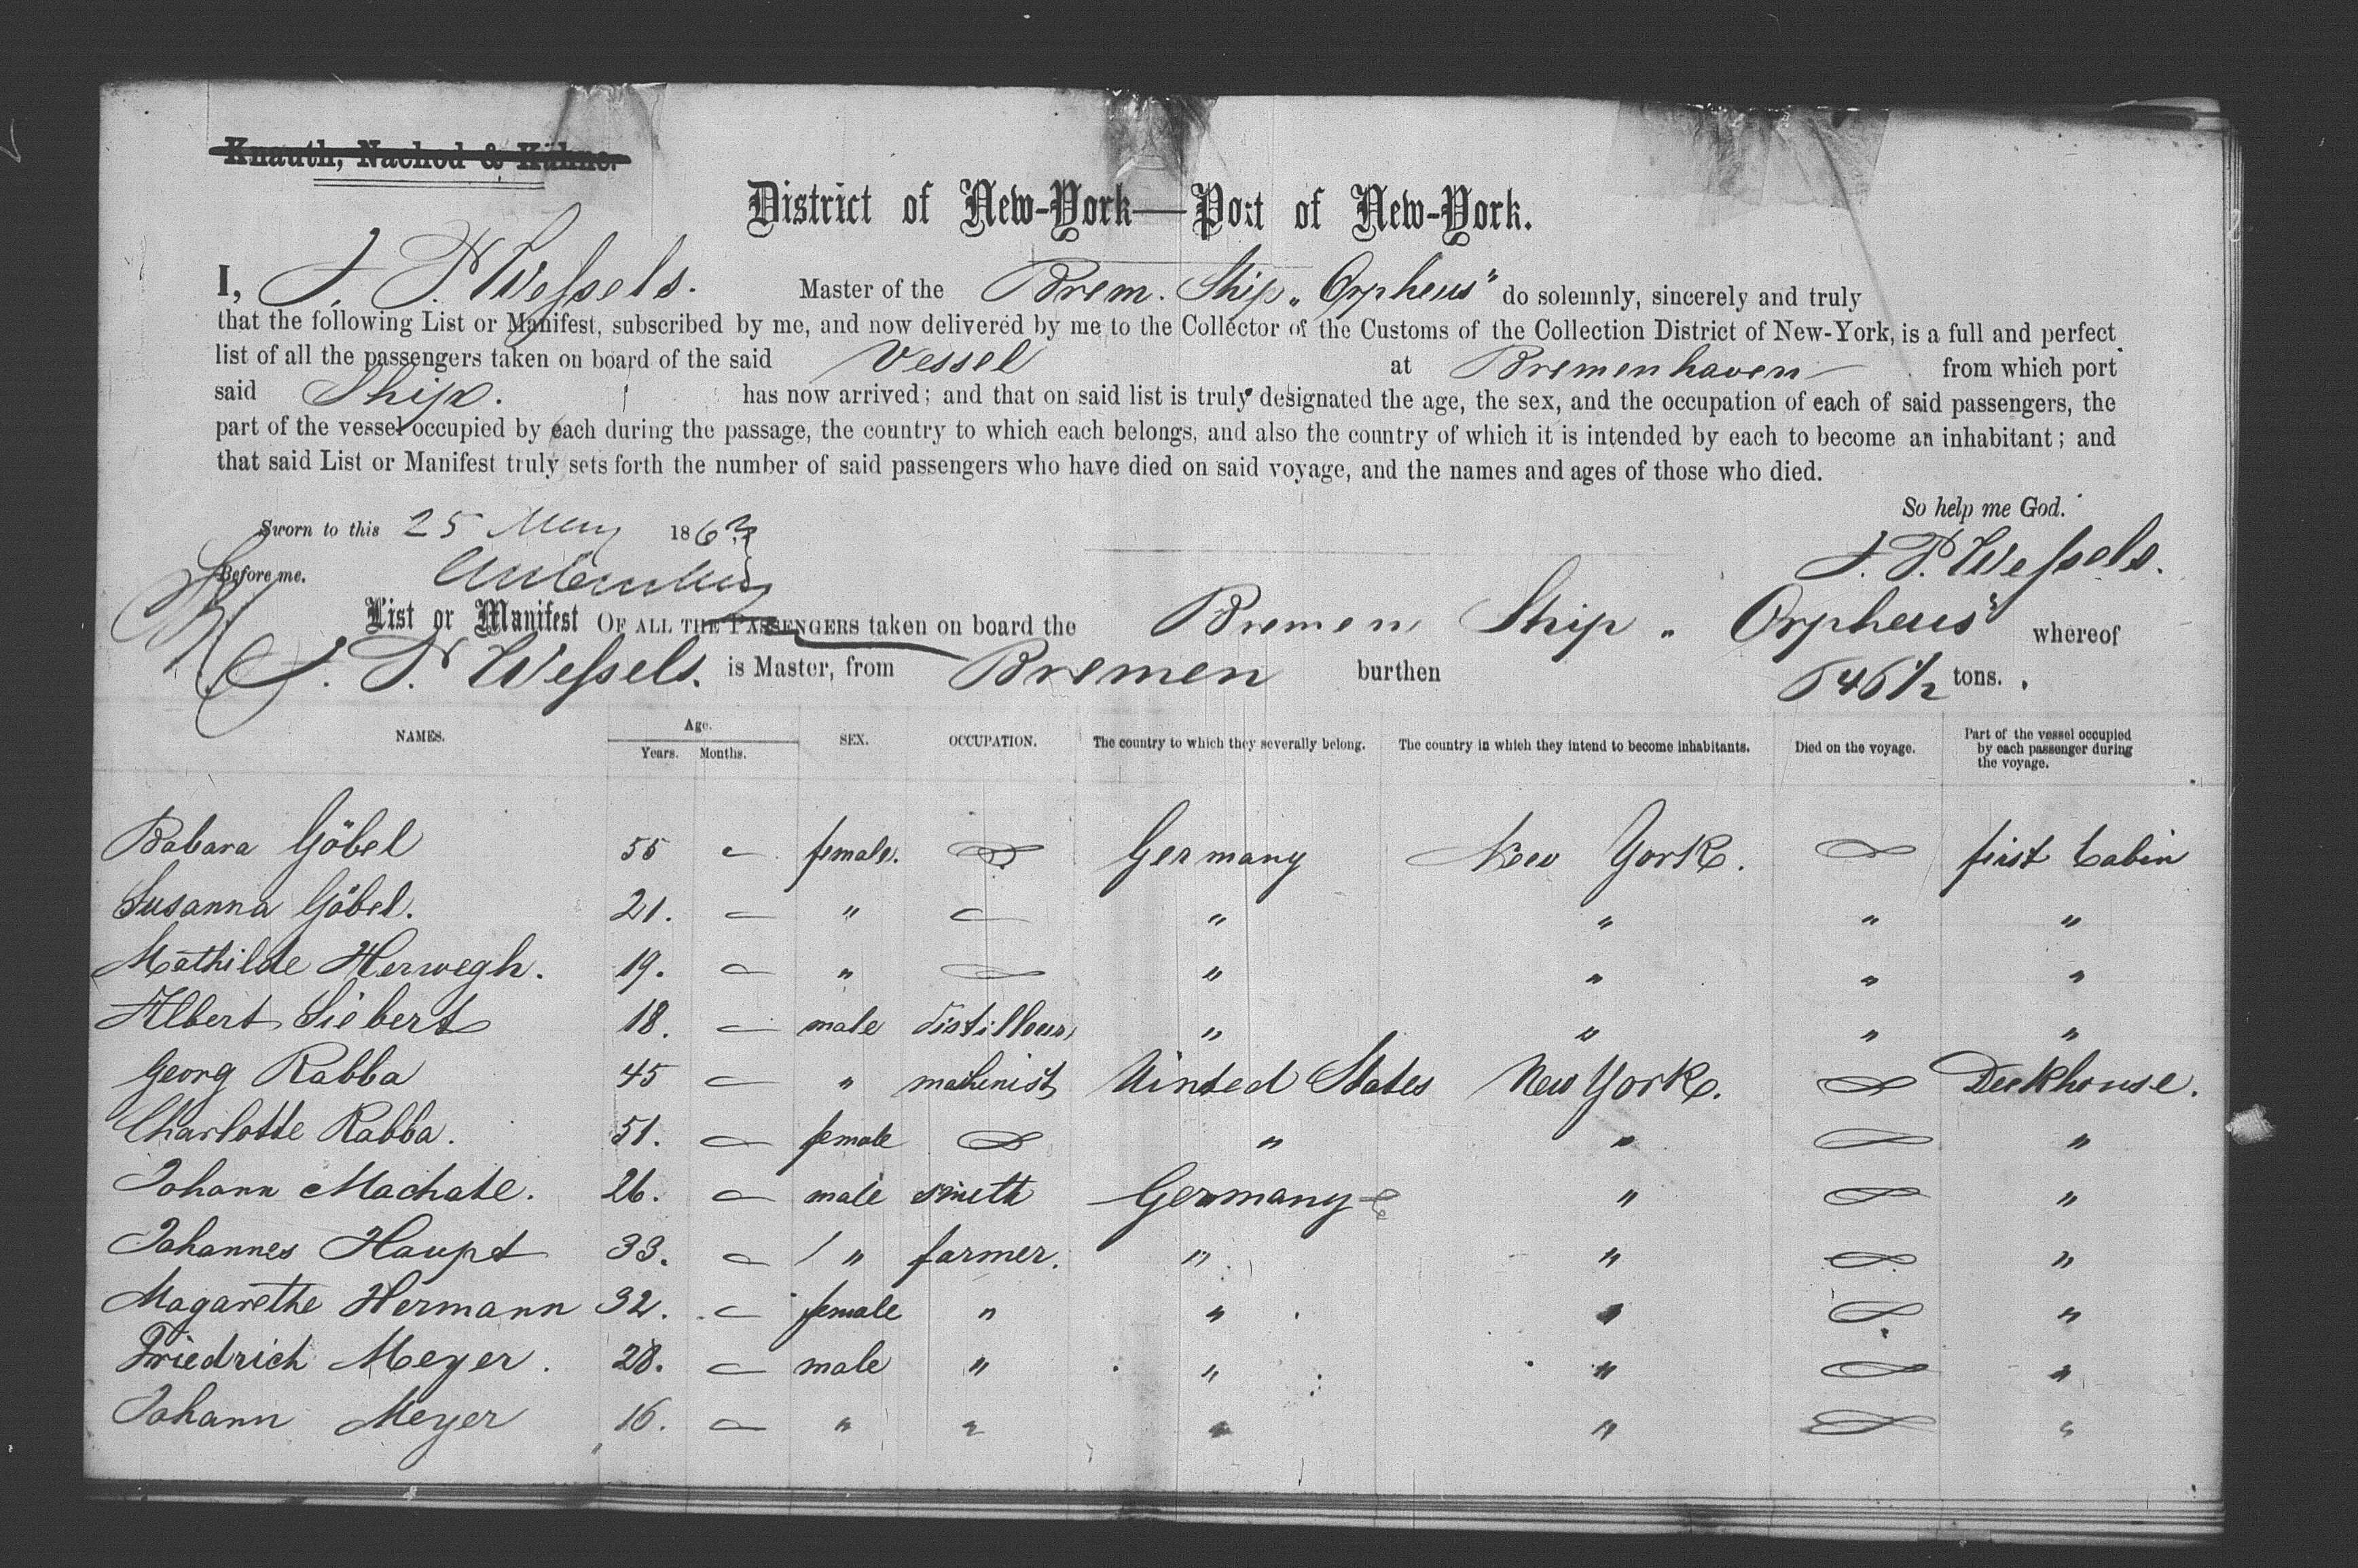 Knauth, Nachod & Kühne.
District of New-York—Port of New-York.
I, J. P. Wessels. Master of the Brem. Ship „Orpheus" do solemnly, sincerely and truly
that the following List or Manifest, subscribed by me, and now delivered by me to the Collector of the Customs of the Collection District of New-York, is a full and perfect
list of all the passengers taken on board of the said Vessel at Bremenhaven from which port
said Ship. has now arrived; and that on said list is truly designated the age, the sex, and the occupation of each of said passengers, the
part of the vessel occupied by each during the passage, the country to which each belongs, and also the country of which it is intended by each to become an inhabitant; and
that said List or Manifest truly sets forth the number of said passengers who have died on said voyage, and the names and ages of those who died.
So help me God.
Sworn to this 25 May 1863
J. P. Wessels.
Before me.
List or Manifest OF ALL THE PASSENGERS taken on board the Bremen Ship „Orpheus" whereof
J. P. Wessels. is Master, from Bremen burthen 646 1/2 tons.
NAMES. Age. Years. Months. SEX. OCCUPATION. The country to which they severally belong. The country in which they intend to become inhabitants. Died on the voyage. Part of the vessel occupied by each passenger during the voyage.
Babara Göbel 55 — female. — Germany New York. — first Cabin
Susanna Göbel. 21. — " — " " " "
Mathilde Herwegh. 19. — " — " " " "
Albert Siebert 18. — male distilleur " " " "
Georg Rabba 45 — " mashinist Uinted States New York. — Deckhouse.
Charlotte Rabba. 51. — female — " " — "
Johann Machate. 26. — male smeth Germany " — "
Johannes Haupt 33. — " farmer. " " — "
Magarethe Hermann 32. — female " " " — "
Friedrich Meyer. 28. — male " " " — "
Johann Meyer 16. — " " " " — "